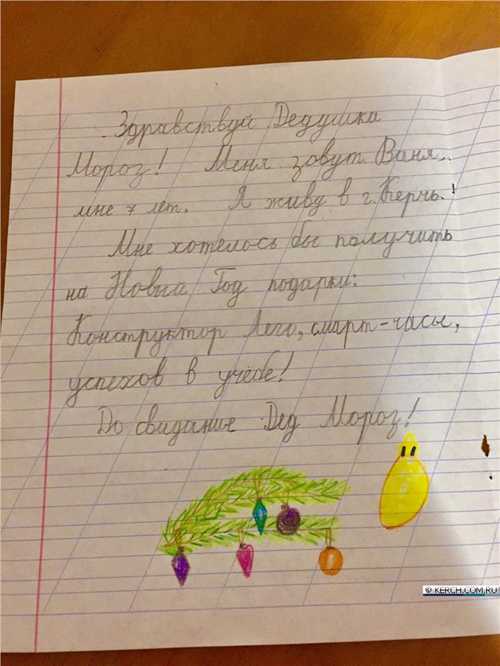 Здравствуй Дедушка
Мороз! Меня зовут Ваня.
мне 7 лет. Я живу в г. Керчь.!
Мне хотелось бы получить
на Новый Год подарки:
Конструктор Лего, смарт-часы,
успехов в учёбе!
До свидание Дед Мороз!
© KERCH.COM.RU